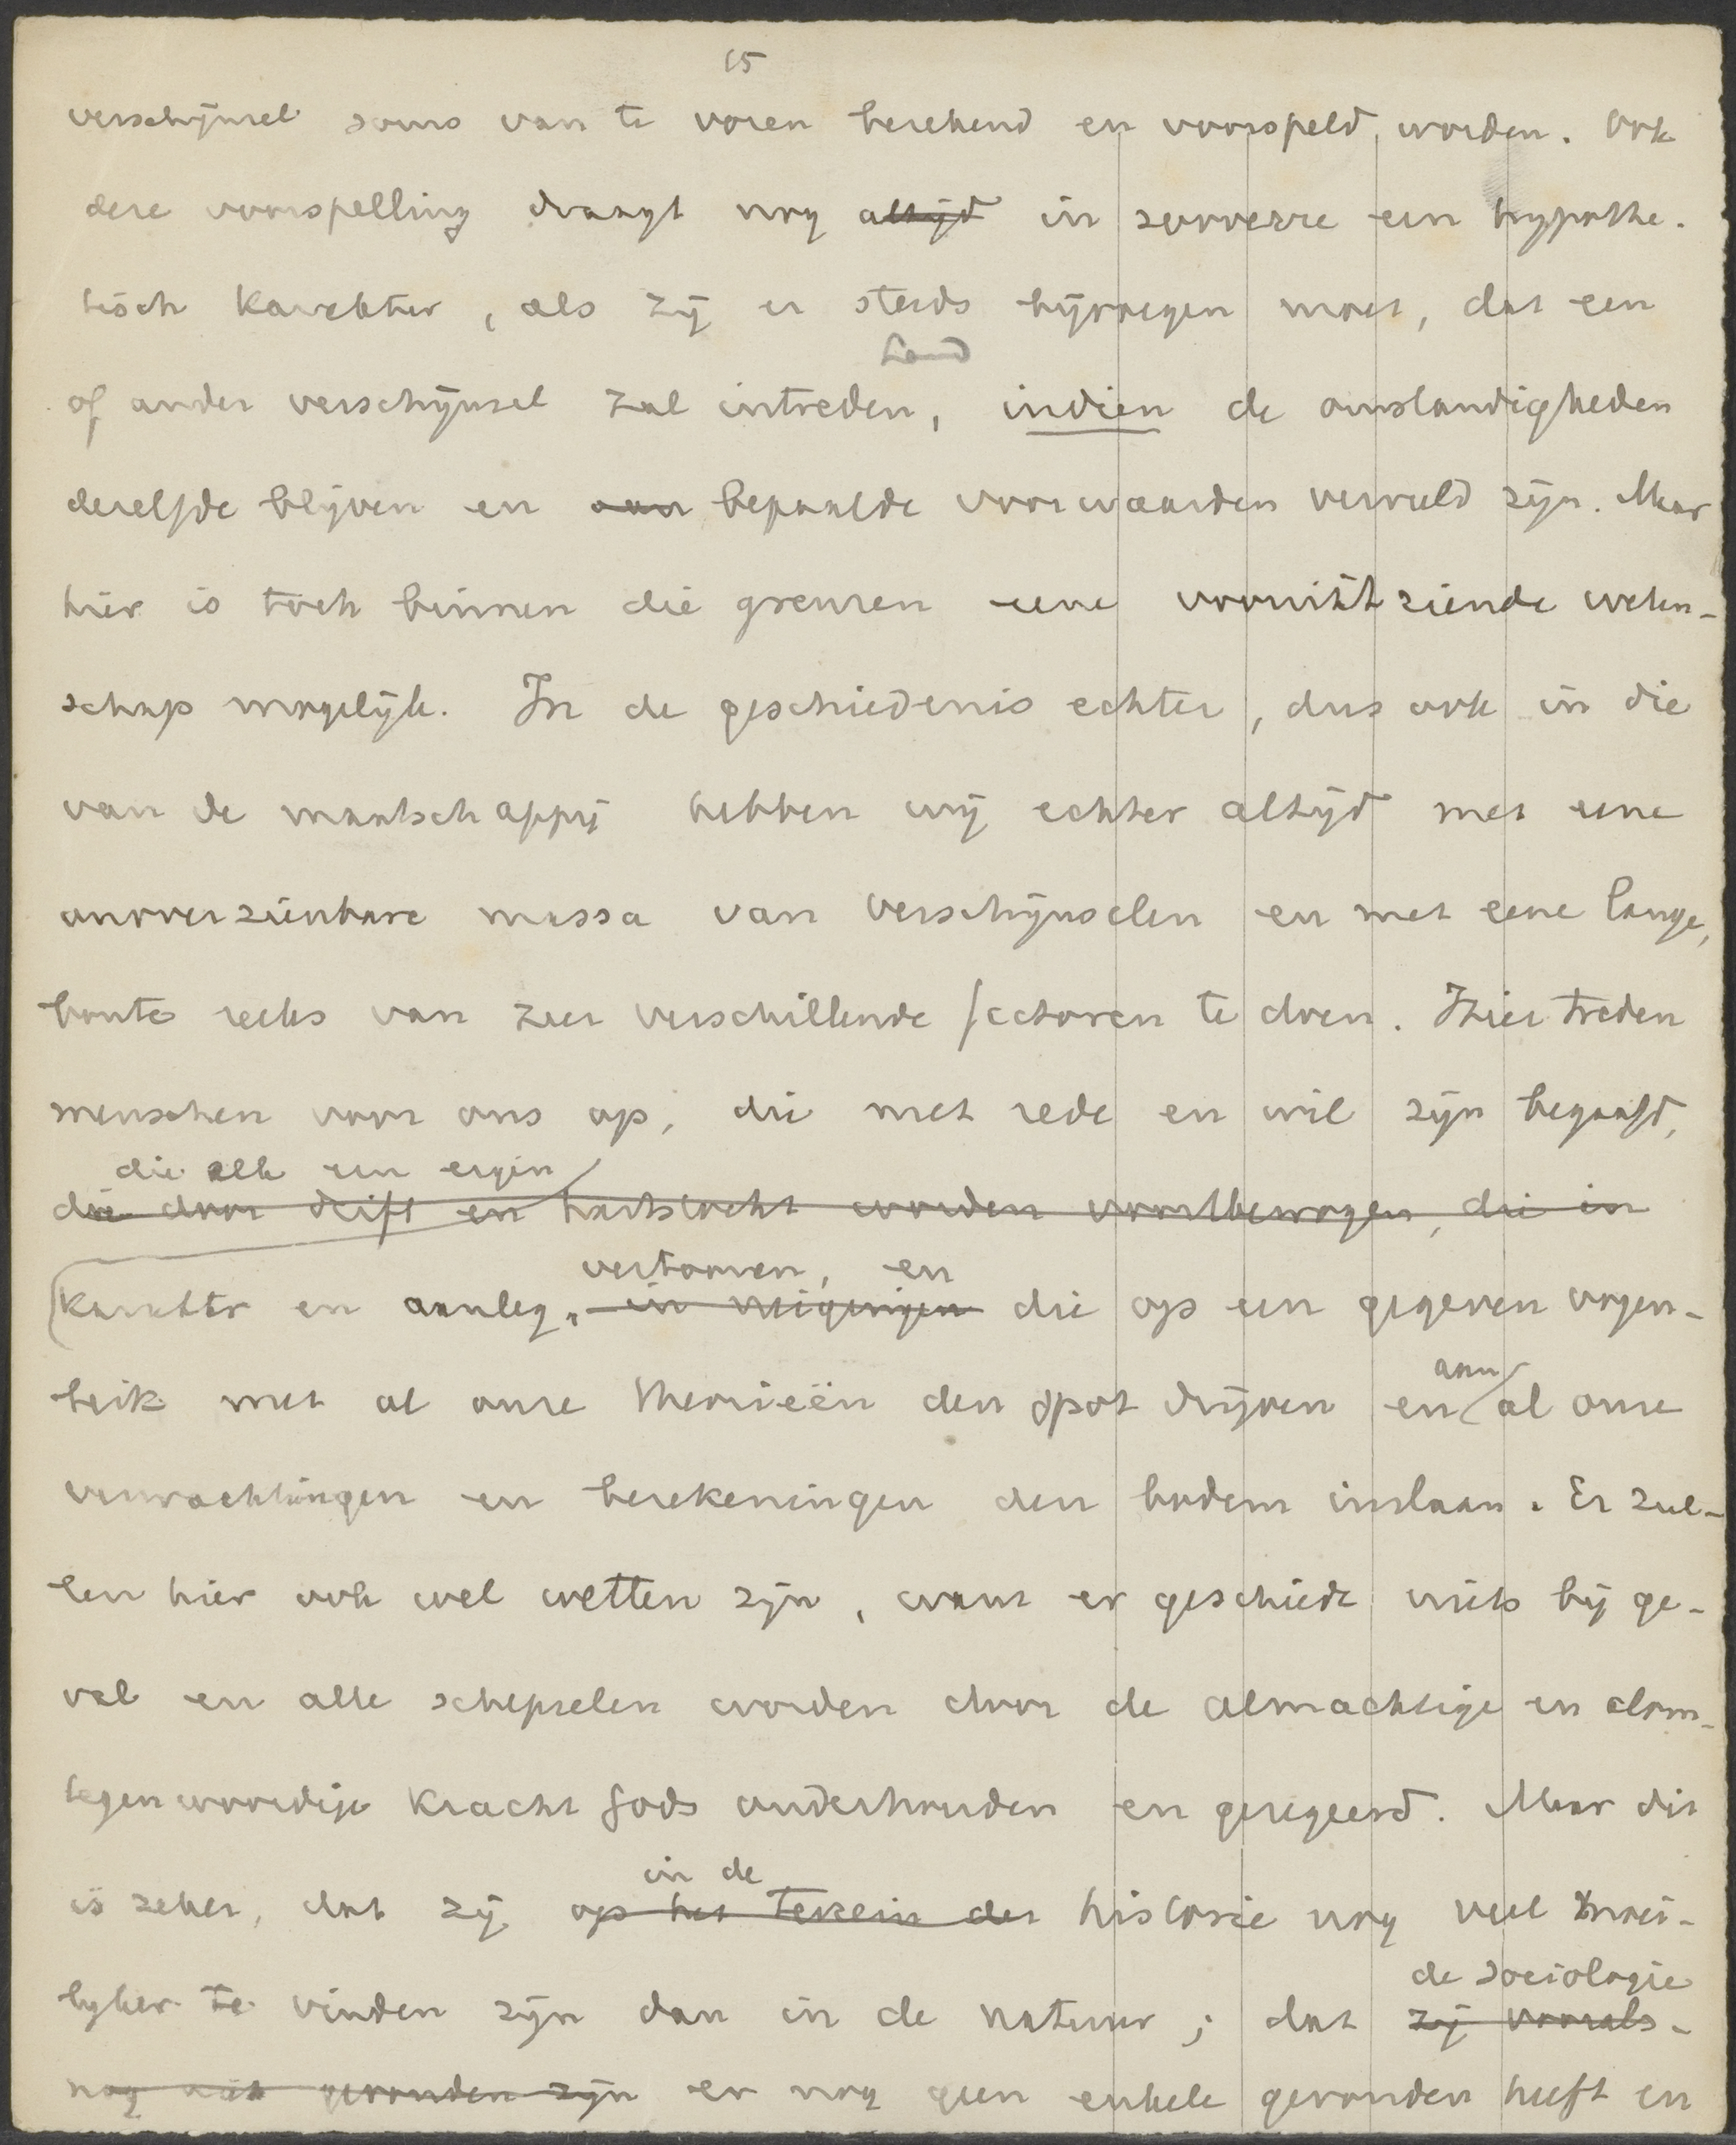 15
verschijnsel soms van te voren berekend en voorspeld worden. Ook
deze voorspelling draagt nog altijd in zooverre een hypothe-
tisch karakter, als zij er steeds bijvoegen moet, dat een
of ander verschijnsel zal intreden, indien de omstandigheden
dezelfde blijven en aan bepaalde voorwaarden vervuld zijn. Maar
hier is toch binnen die grenzen eene vooruitziende weten-
schap mogelijk. In de geschiedenis echter, dus ook in die
van de maatschappij hebben wij echter altijd met eene
onoverzienbare massa van verschijnselen en met eene lange,
bonte reeks van zeer verschillende factoren te doen. Hier treden
menschen voor ons op, die met rede en wil zijn begaafd,
die elk een eigen
die door drift en hartstocht worden voortbewogen, die in
vertoonen, en
karakter en aanleg, in neigingen die op een gegeven oogen-
aan
blik met al onze theorieën den spot drijven en al onze
verwachtingen en berekeningen den bodem inslaan. Er zul-
len hier ook wel wetten zijn, want er geschiedt niets bij ge-
val en alle schepselen worden door de almachtige en alom-
tegenwoordige kracht Gods onderhouden en geregeerd. Maar dit
in de
is zeker, dat zij op het terrein der historie nog veel moei-
de sociologie
lijker te vinden zijn dan in de natuur; dat zij voorals-
nog niet gevonden zijn er nog geen enkele gevonden heeft en